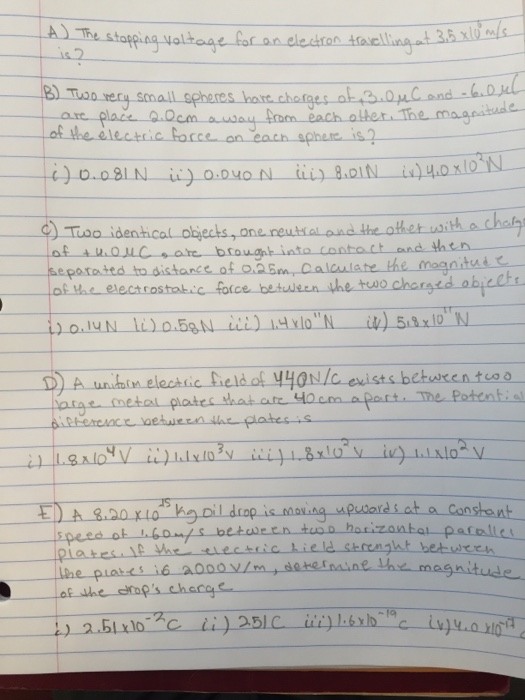 A) The stopping voltage for an electron travelling at 3.5 x10⁶ m/s
is?
B) Two very small spheres have charges of +3.0μC and -6.0μC
are place 2.0cm away from each other. The magnitude
of the electric force on each sphere is?
i) 0.081N ii) 0.040 N iii) 8.01N iv) 4.0x10²N
C) Two identical objects, one neutral and the other with a charge
of +4.0μC, are brought into contact and then
separated to distance of 0.25m, Calculate the magnitude
of the electrostatic force between the two charged objects
i) 0.14N ii) 0.58N iii) 1.4x10¹¹N iv) 5.8x10¹¹N
D) A uniform electric field of 440N/C exists between two
large metal plates that are 40cm apart. The Potential
difference between the plates is
i) 1.8x10⁴V ii) 1.1x10³v iii) 1.8x10²v iv) 1.1x10²V
E) A 8.20 x10⁻¹⁵ kg Oil drop is moving upwards at a constant
speed of 1.60m/s between two horizontal parallel
plates. If the electric field strenght between
the plates is 2000V/m, determine the magnitude
of the drop's charge
i) 2.51x10⁻²C ii) 251C iii) 1.6x10⁻¹⁹C iv) 4.0x10⁻¹⁷C